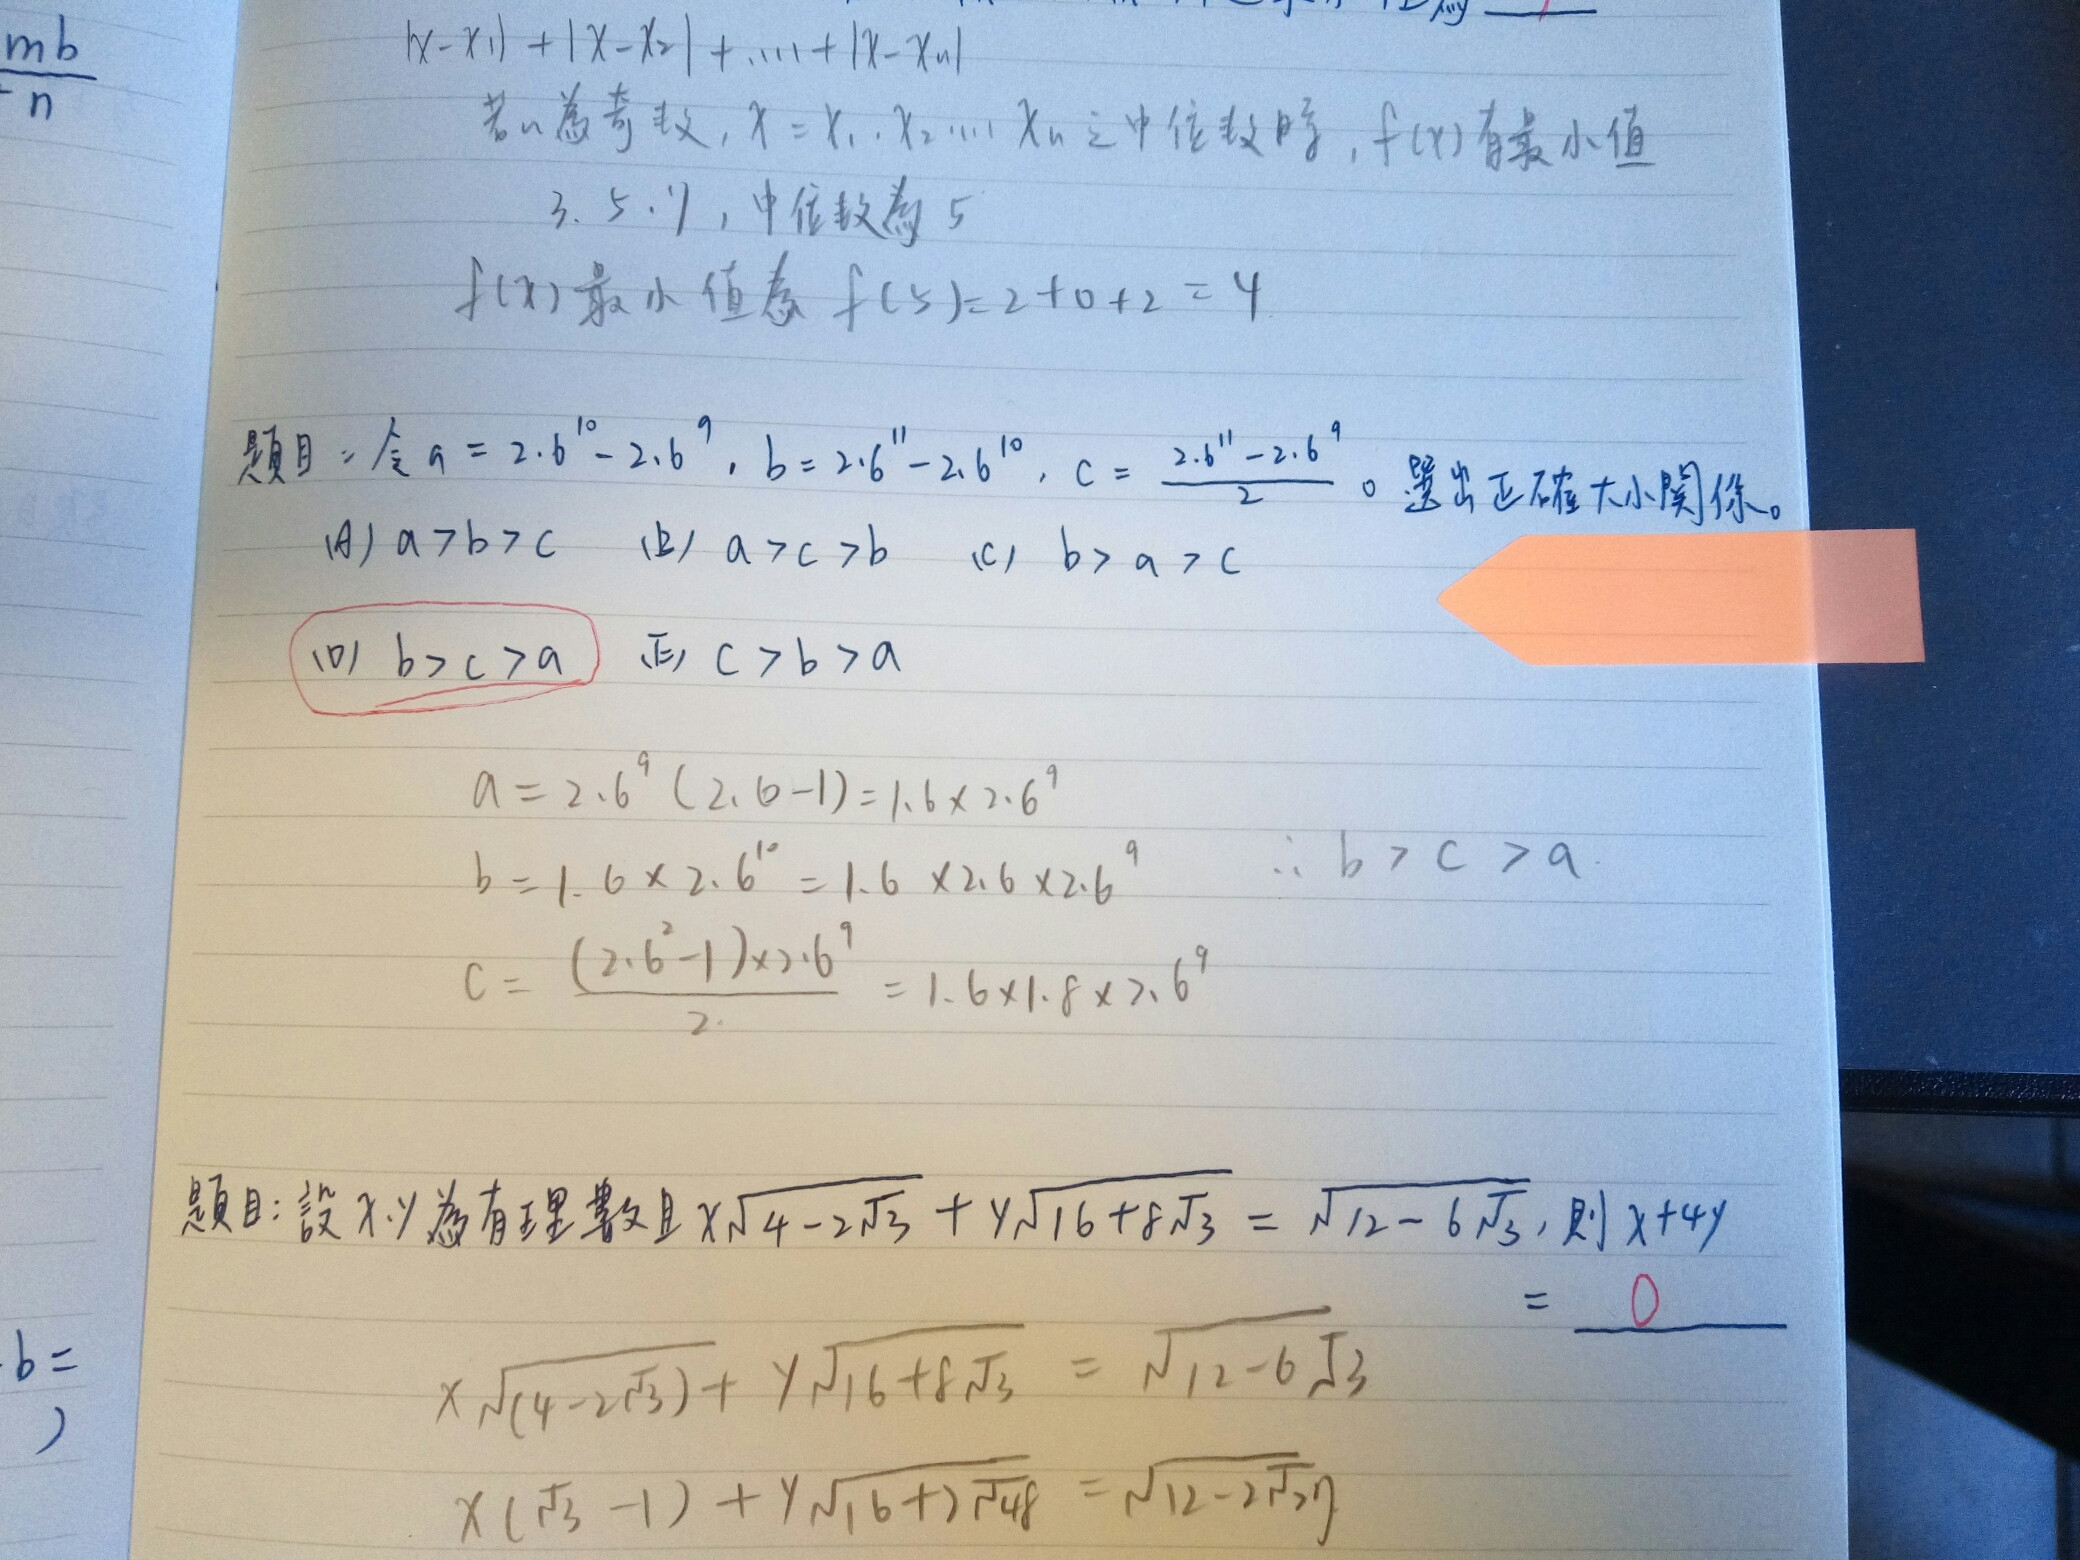 mb
n
|x-x₁|+|x-x₂|+....+|x-xₙ|
若n為奇数, x=x₁.x₂....xₙ之中位数時, f(x)有最小值
3.5.7, 中位数為5
f(x)最小值為 f(5)=2+0+2=4
題目:令a=2.6¹⁰-2.6⁹, b=2.6¹¹-2.6¹⁰, c=(2.6¹¹-2.6⁹)/2。選出正確大小關係。
(A) a>b>c (B) a>c>b (C) b>a>c
(D) b>c>a (E) c>b>a
a=2.6⁹(2.6-1)=1.6×2.6⁹
b=1.6×2.6¹⁰=1.6×2.6×2.6⁹ ∴b>c>a
c=((2.6²-1)×2.6⁹)/2=1.6×1.8×2.6⁹
題目:設x.y為有理數且x√(4-2√3)+y√(16+8√3)=√(12-6√3), 則x+4y
= 0
x√(4-2√3)+y√(16+8√3)=√(12-6√3)
x(√3-1)+y√(16+2√48)=√(12-2√27)
b=
)